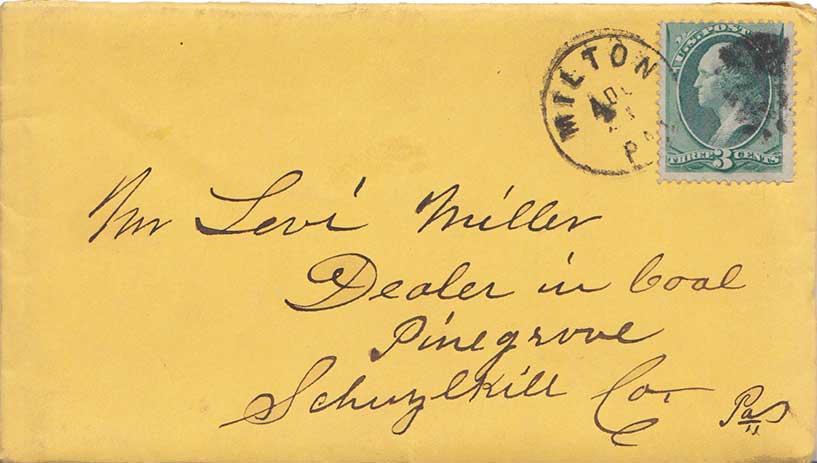 MILTON
PA.
U.S. POST
THREE 3 CENTS
Mr Levi Miller
Dealer in Coal
Pinegrove
Schuylkill Co. Pa